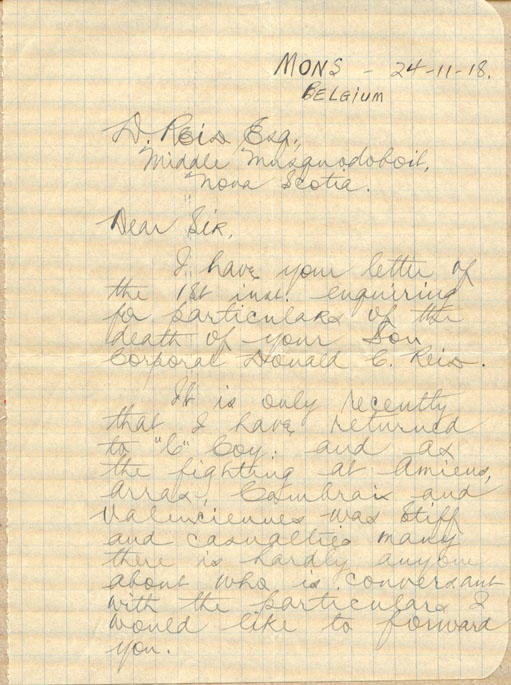 MONS - 24-11-18.
BELGIUM
D. Reid Esq.,
Middle Musquodoboit,
Nova Scotia.
Dear Sir,
I have your letter of
the 1st inst. enquiring
for particulars of the
death of your Son
Corporal Donald C. Reid.
It is only recently
that I have returned
to "C" Coy. and as
the fighting at Amiens,
Arras, Cambrai and
Valenciennes was stiff
and casualties many
there is hardly anyone
about who is conversant
with the particulars I
would like to forward
you.